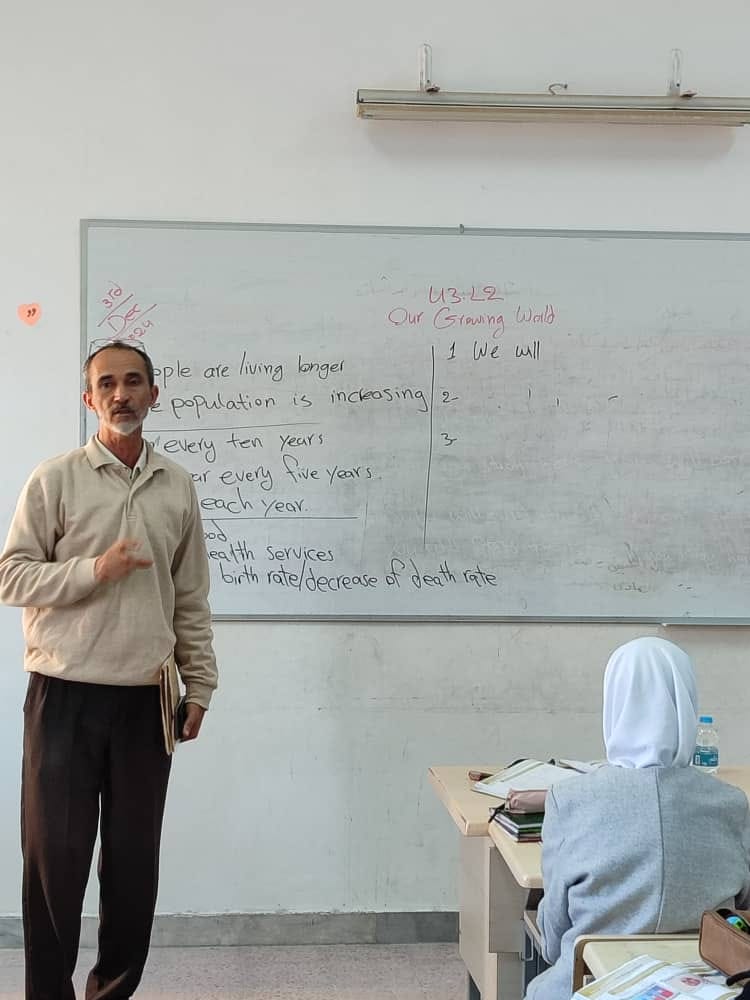 3rd
Dec
U3.L2
Our Growing World
ople are living longer
e population is increasing
every ten years
ar every five years.
each year.
ood
ealth services
birth rate/decrease of death rate
1 We will
2-
3-